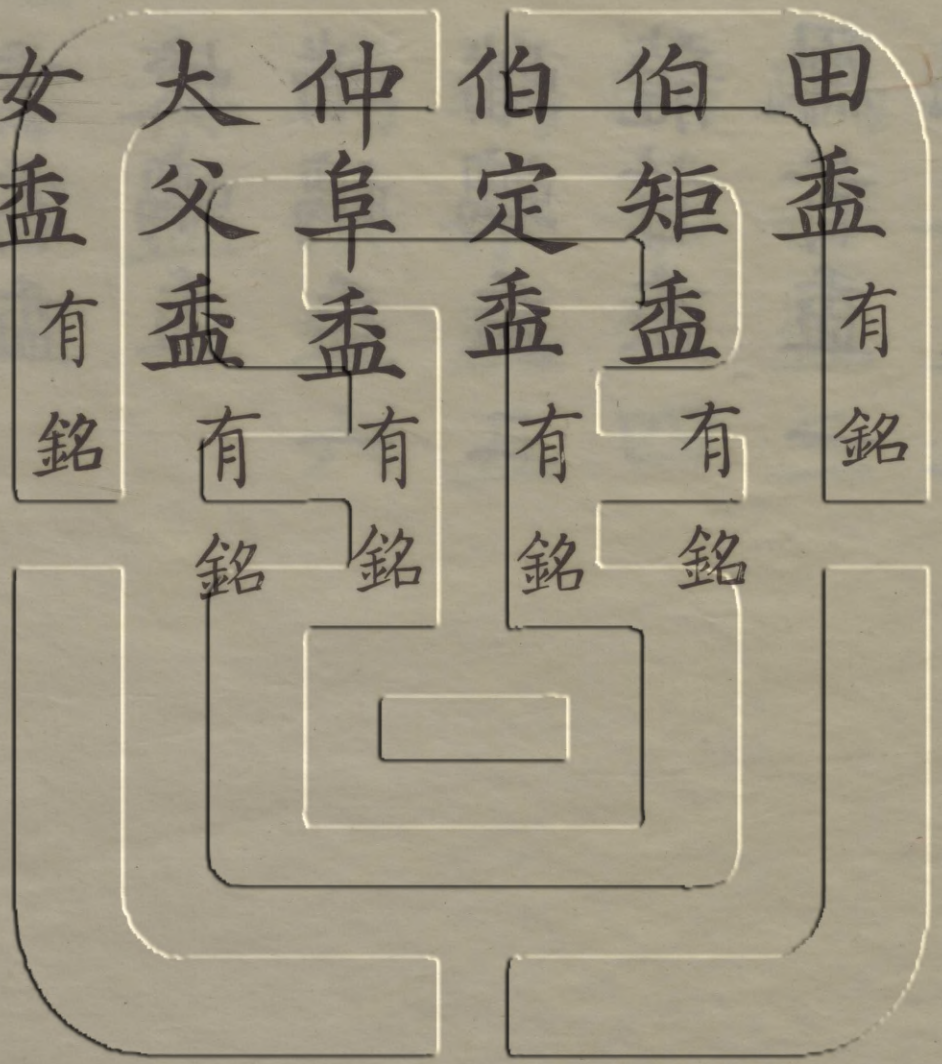 田盉有銘
伯矩盉有銘
伯定盉有銘
仲阜盉有銘
大父盉有銘
女盉有銘